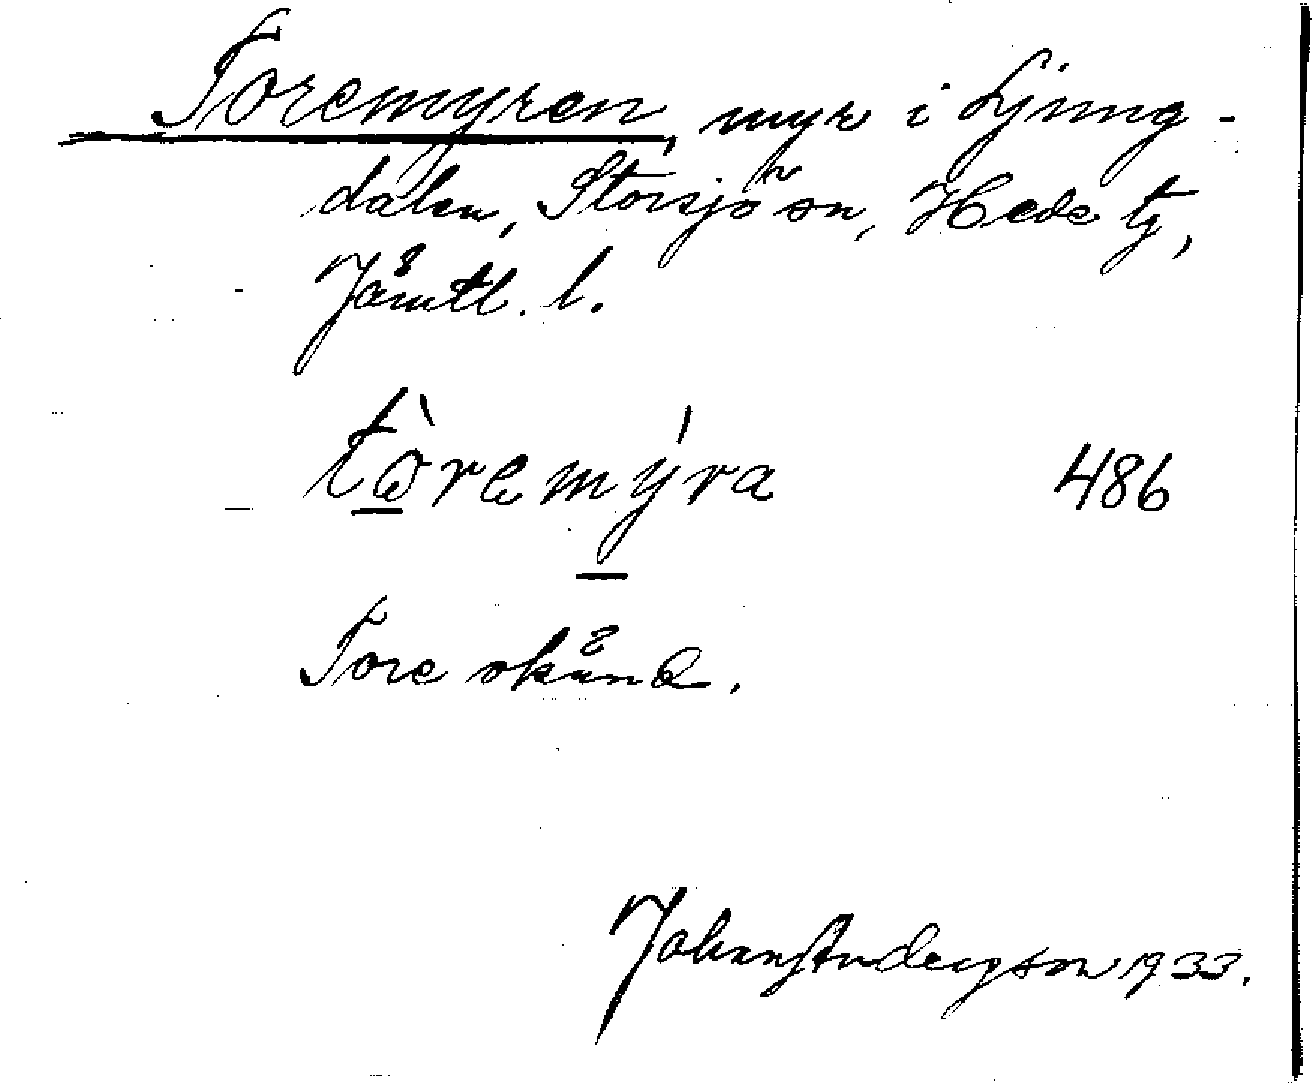 Toremyren, myr i Ljung-
dalen, Storsjö sn, Hede tg,
Jämtl. l.
tòremýra 486
Tore okänd.
Johan Andersson 1933.